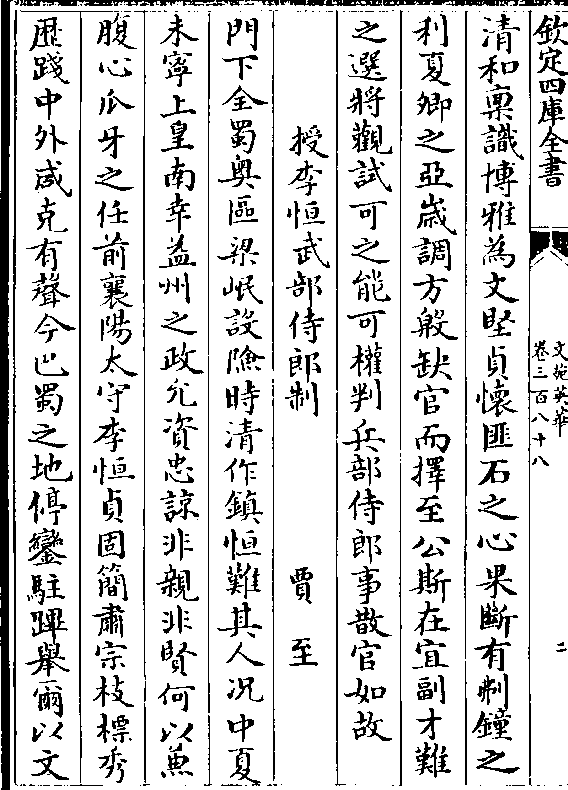 欽定四庫全書
文苑英華
卷三百八十八
二
清和稟識博雅為文堅貞懷匪石之心果斷有剸鐘之
利夏卿之亞歲調方殷缺官而擇至公斯在宜副才難
之選將觀試可之能可權判兵部侍郎事散官如故
授李恒武部侍郎制 賈至
門下全蜀奥區梁岷設險時清作鎮恒難其人况中夏
未寧上皇南幸益州之政允資忠諒非親非賢何以兼
腹心爪牙之任前襄陽太守李恒貞固簡肅宗枝標秀
歴踐中外咸克有聲今巴蜀之地停鑾駐蹕舉爾以文